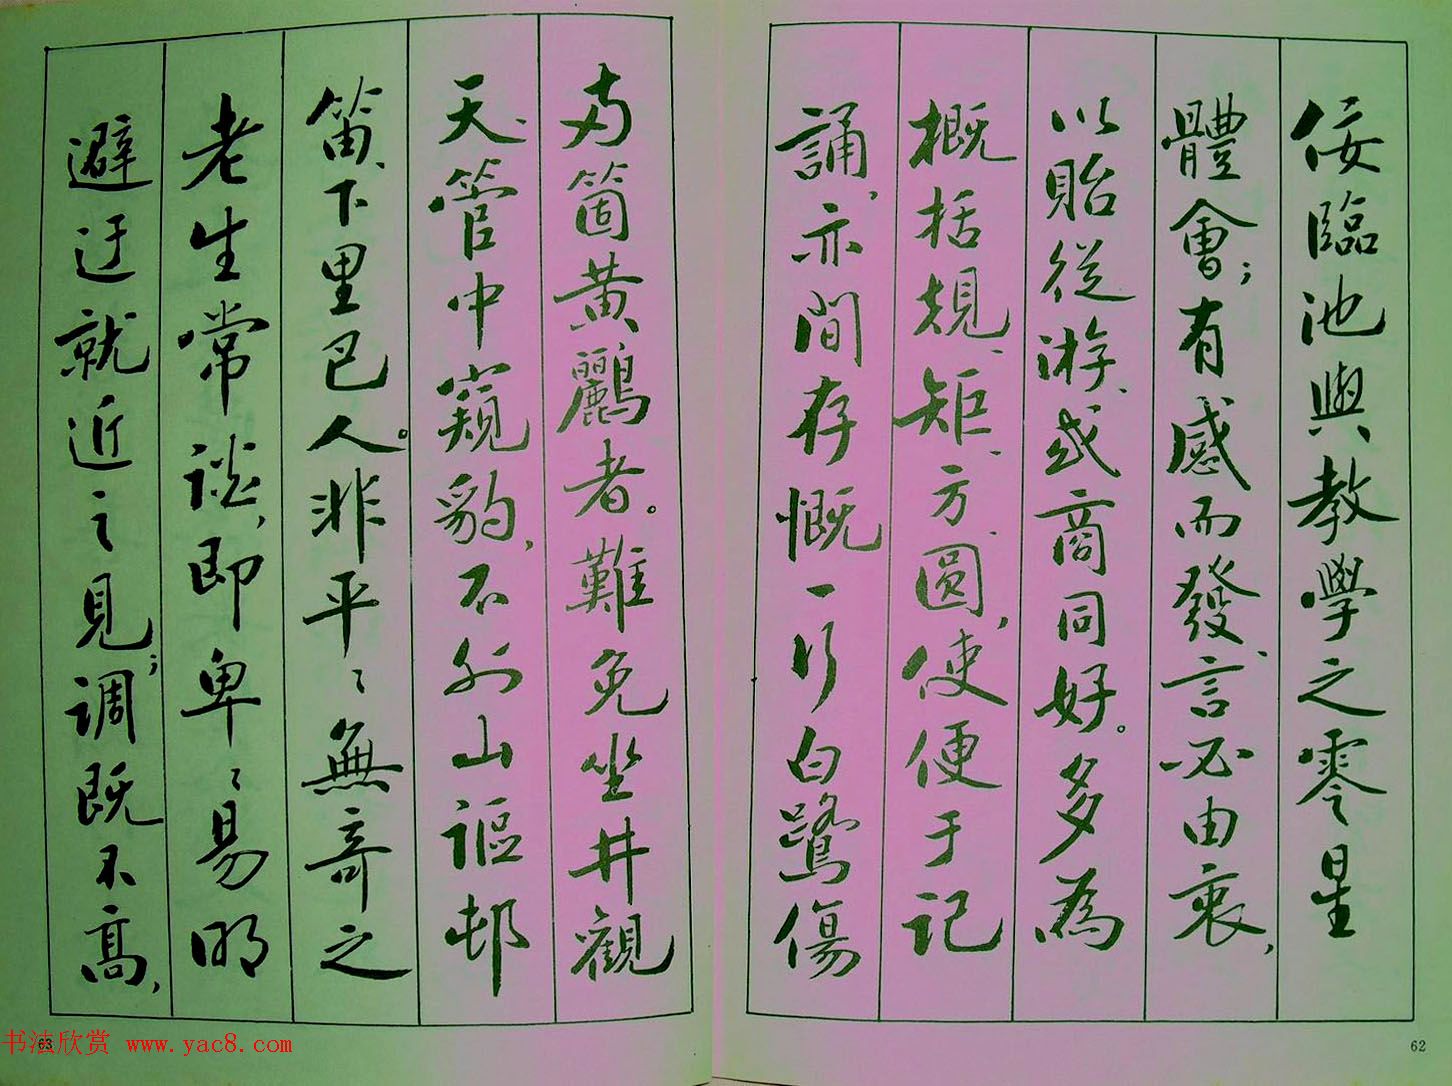 佞臨池與教學之零星
體會；有感而發、言必由衷，
以貽從游、或商同好。多為
概括規、矩、方、圓，使便于記
誦，亦間存慨一行白鷺傷
兩箇黃鸝者。難免坐井觀
天、管中窺豹，不外山謳邨
笛、下里巴人。非平〻無奇之
老生常談，即卑〻易明
避迂就近之見；调既不高，
63
62
书法欣赏 www.yac8.com